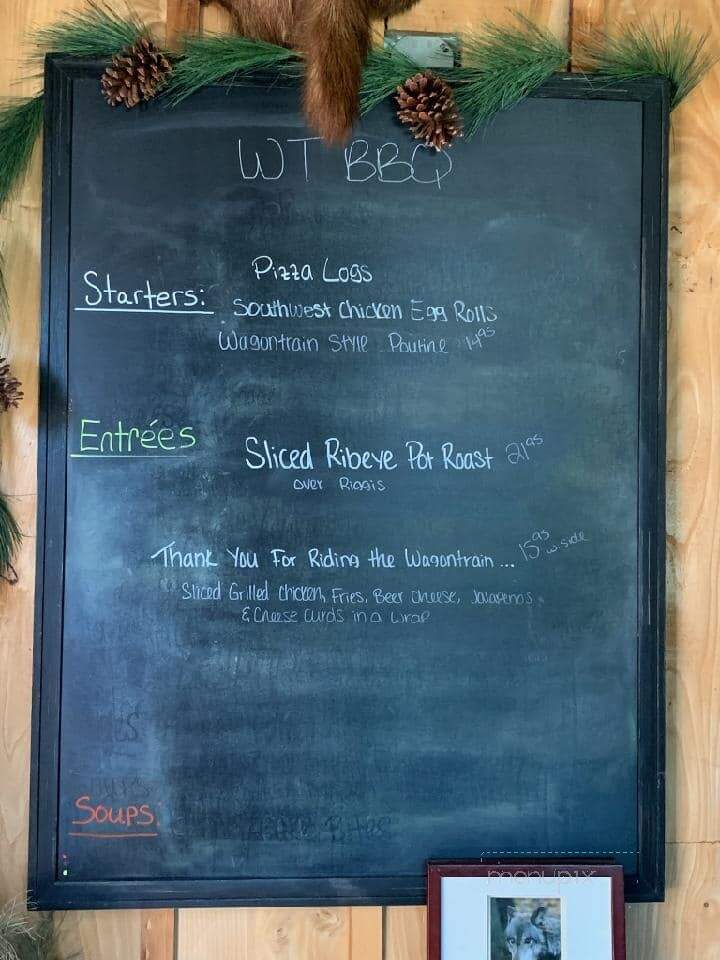 WT BBQ
Starters:
Pizza Logs
Southwest Chicken Egg Rolls
Wagontrain Style Poutine 14.95
Entrées
Sliced Ribeye Pot Roast 21.95
over Riggis
Thank You For Riding the Wagontrain ... 15.95 w-side
Sliced Grilled Chicken, Fries, Beer Cheese, Jalapenos
& Cheese Curds in a Wrap
Soups:
menupix